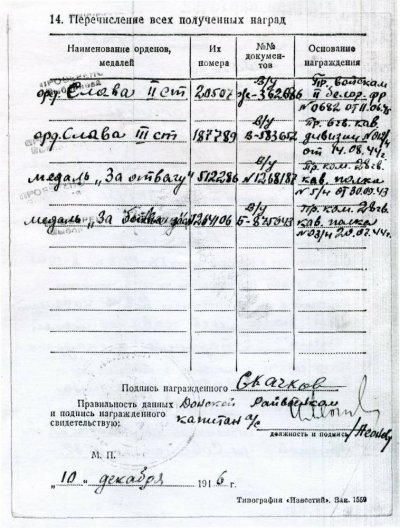 14. Перечисление всех полученных наград
Наименование орденов, медалей
Их номера
№№ документов
Основание награждения
орд. Слава II ст 20507 В/у Пр. войскам II белор. фр №0682 от
орд. Слава III ст 187789 В/у В-583652 Пр. 6гв. кав. дивизии от 14.08.44г.
медаль „За отвагу" 512286 В/у №1268187 Пр. ком. 28гв. кав. полка №5/н от 30.09.43
медаль „За В/у Б-875043 Пр. ком. 28гв. кав. полка №03/н 20.07.44г.
Подпись награжденного Скачков
Правильность данных Донской Райвоенком
и подпись награжденного
свидетельствую: капитан а/с
должность и подпись
М. П.
„10" декабря 1916 г.
Типография «Известий». Зак. 1559